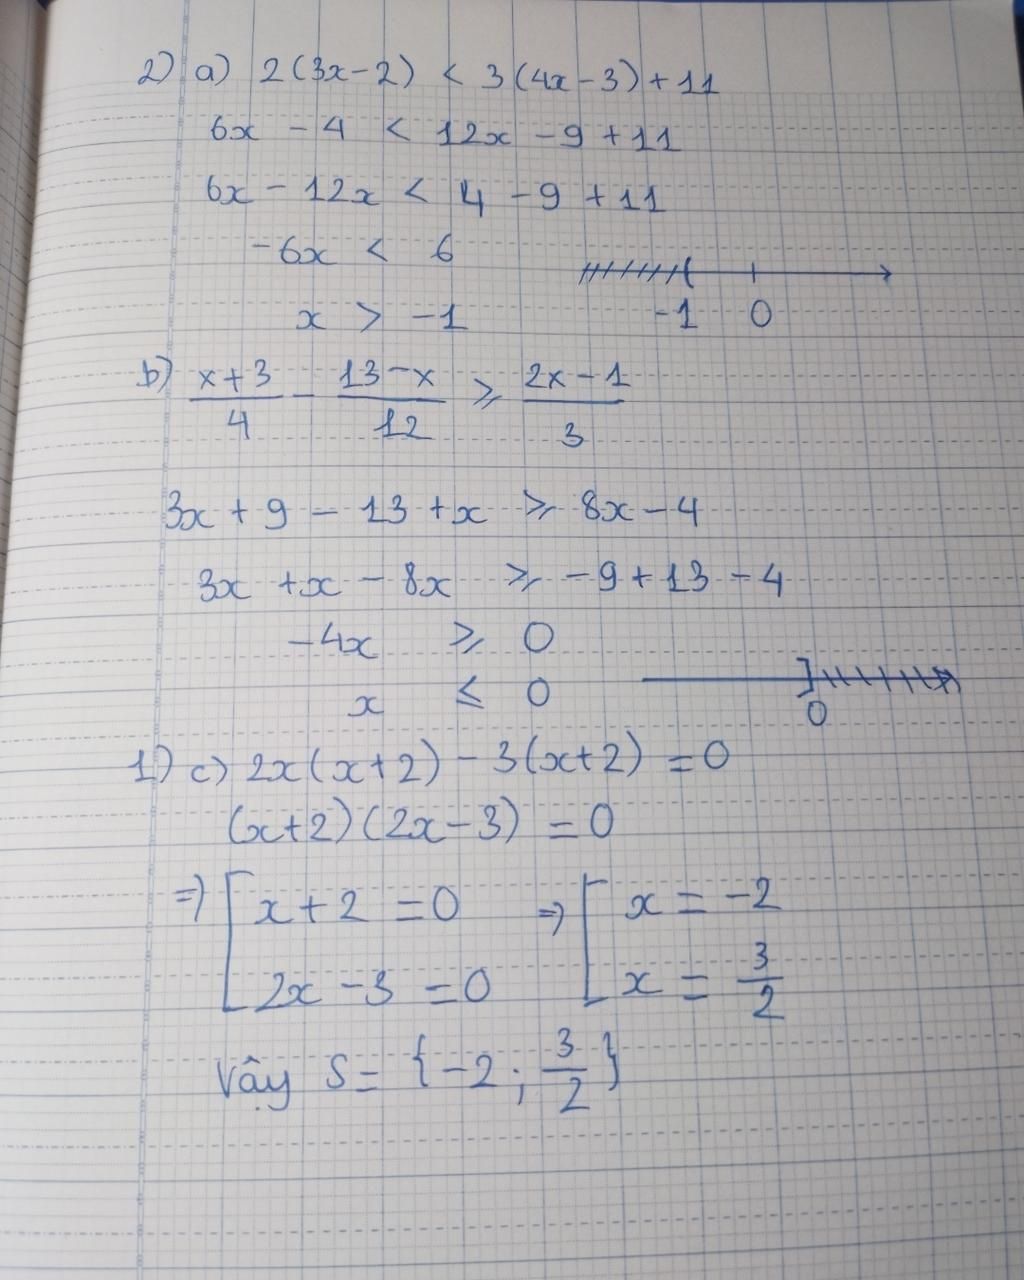 2) a) 2(3x-2) < 3(4x-3)+11
6x - 4 < 12x - 9 + 11
6x - 12x < 4 - 9 + 11
-6x < 6
x > -1
-1 0
b) \frac{x+3}{4} - \frac{13-x}{12} ⩾ \frac{2x-1}{3}
3x + 9 - 13 + x ⩾ 8x - 4
3x + x - 8x ⩾ -9 + 13 - 4
-4x ⩾ 0
x ≤ 0
0
1) c) 2x(x+2) - 3(x+2) = 0
(x+2)(2x-3) = 0
=> [ x+2 = 0 => [ x = -2
2x - 3 = 0 x = \frac{3}{2}
Vậy S = {-2 ; \frac{3}{2}}